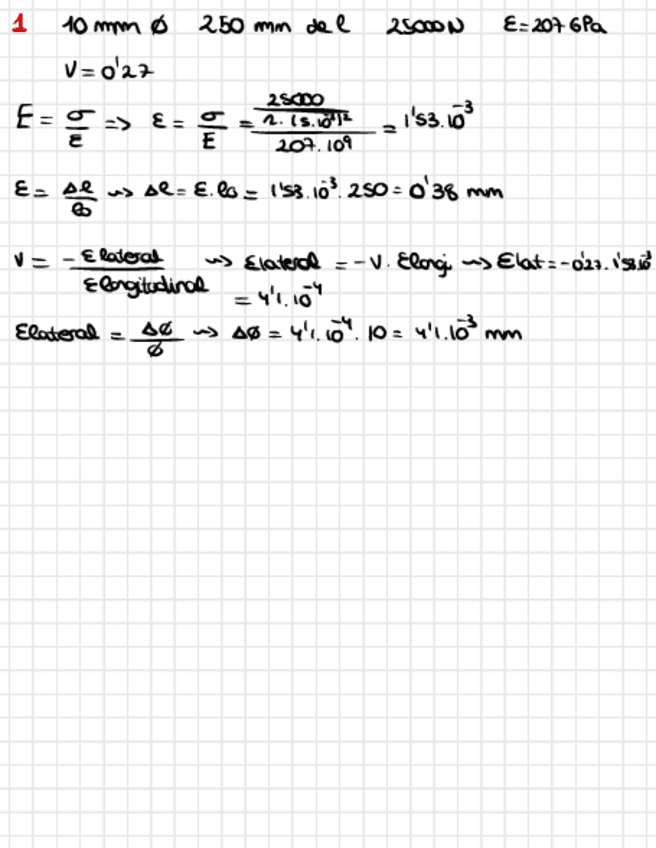 1 10 mm ϕ 250 mm de l 25000N E=207 GPa
ν = 0'27
E = σ/ε => ε = σ/E = (25000/(π·(5·10⁻³)²))/(207·10⁹) = 1'53·10⁻³
ε = Δl/l₀ ⇝ Δl = ε·l₀ = 1'53·10⁻³·250 = 0'38 mm
ν = -ε lateral/ε longitudinal ⇝ ε lateral = -ν·ε longi ⇝ ε lat = -0'27·1'53·10⁻³
= 4'1·10⁻⁴
ε lateral = Δϕ/ϕ ⇝ Δϕ = 4'1·10⁻⁴·10 = 4'1·10⁻³ mm